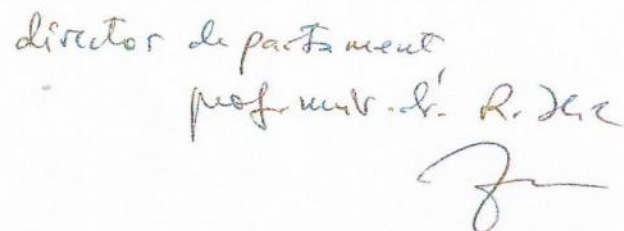 director departament
prof. univ. dr. R.